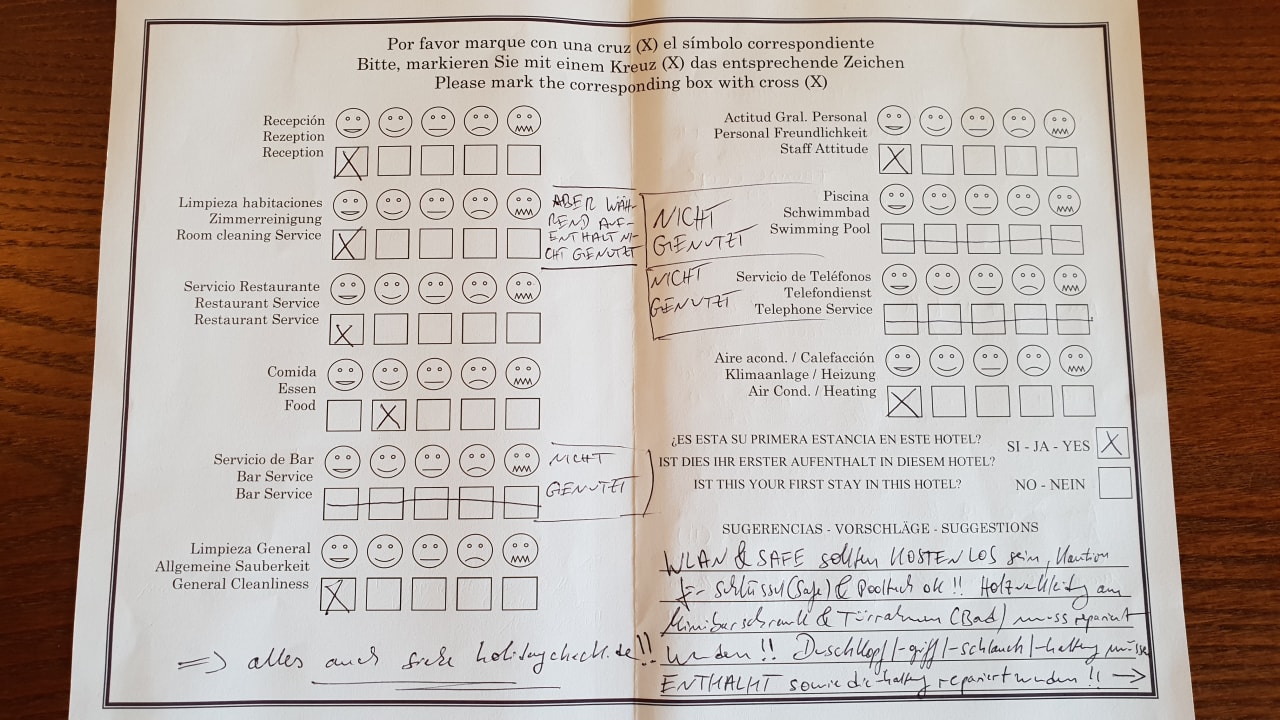 Por favor marque con una cruz (X) el símbolo correspondiente
Bitte, markieren Sie mit einem Kreuz (X) das entsprechende Zeichen
Please mark the corresponding box with cross (X)
Recepción
Rezeption
Reception
X
Limpieza habitaciones
Zimmerreinigung
Room cleaning Service
X
ABER WÄH-
REND AUF-
ENTHALT NI-
CHT GENUTZT
Servicio Restaurante
Restaurant Service
Restaurant Service
X
Comida
Essen
Food
X
Servicio de Bar
Bar Service
Bar Service
NICHT
GENUTZT
Limpieza General
Allgemeine Sauberkeit
General Cleanliness
X
=> alles auch siehe holidaycheck.de!!
Actitud Gral. Personal
Personal Freundlichkeit
Staff Attitude
X
Piscina
Schwimmbad
Swimming Pool
NICHT
GENUTZT
Servicio de Teléfonos
Telefondienst
Telephone Service
NICHT
GENUTZT
Aire acond. / Calefacción
Klimaanlage / Heizung
Air Cond. / Heating
X
¿ES ESTA SU PRIMERA ESTANCIA EN ESTE HOTEL?
IST DIES IHR ERSTER AUFENTHALT IN DIESEM HOTEL?
IST THIS YOUR FIRST STAY IN THIS HOTEL?
SI - JA - YES X
NO - NEIN
SUGERENCIAS - VORSCHLÄGE - SUGGESTIONS
WLAN & SAFE sollten KOSTENLOS sein, Kaution
f- Schlüssel (Safe) & Pooltuch ok!! Holzverkleidung am
Minibarschrank & Türrahmen (Bad) muss repariert
werden!! Duschkopf/-griff/-schlauch/-haltung müssen
sowie die haltung repariert werden!! →